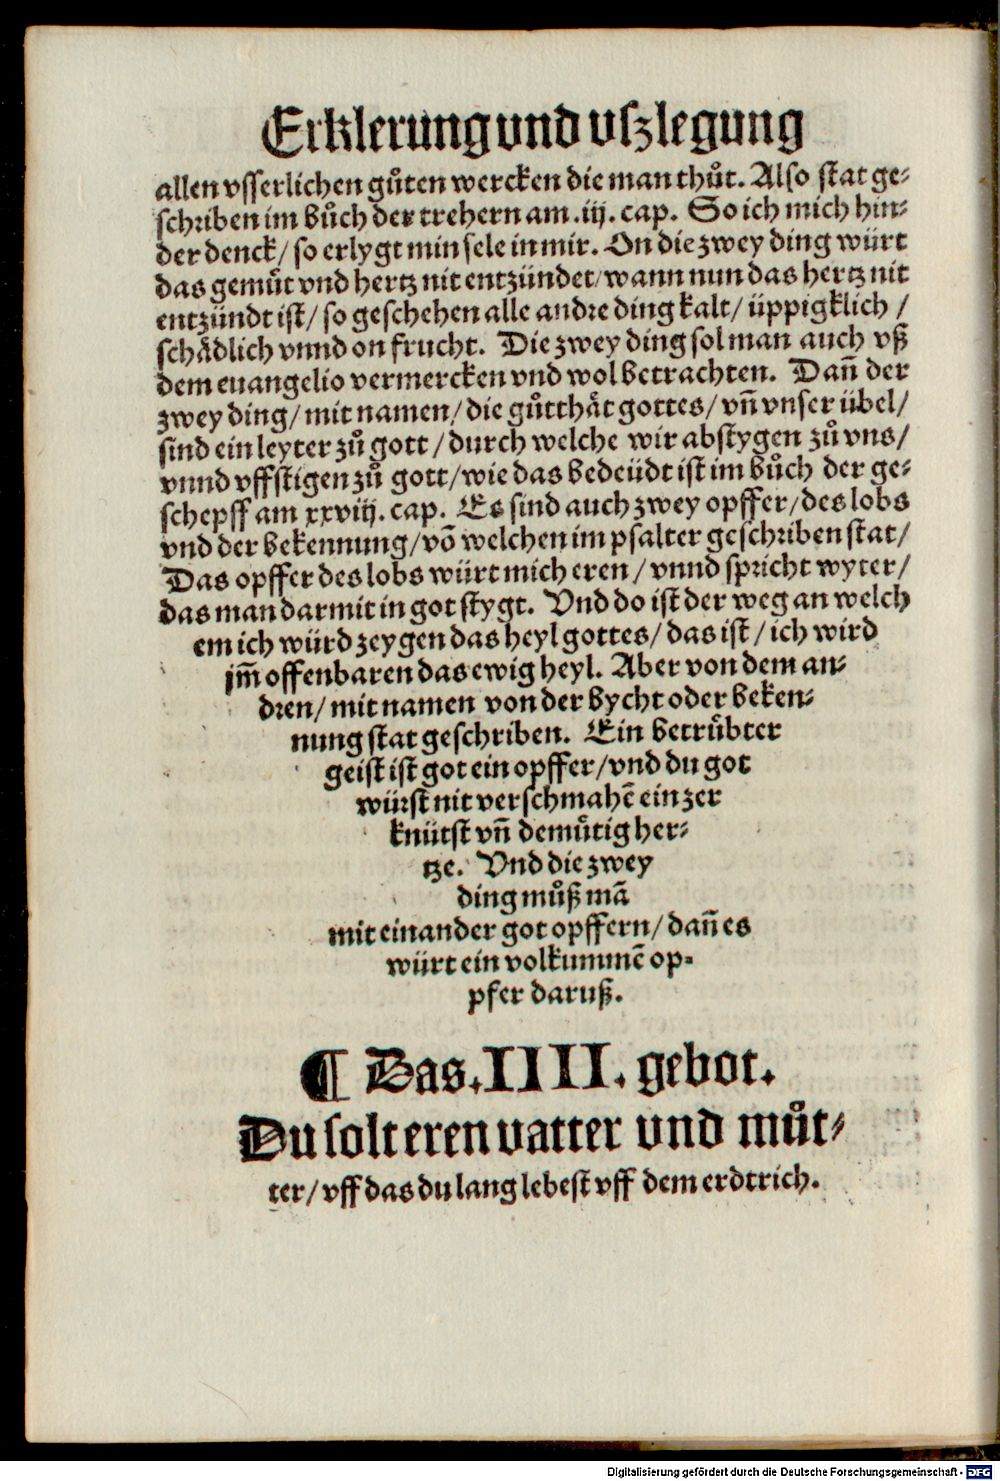 Erklerung vnd vſzlegung
allen vſſerlichen gůten wercken die man thůt. Alſo ſtat ge⸗
ſchriben im bůch der trehern am .iij. cap. So ich mich hin⸗
der denck/ ſo erlygt min ſele in mir. On die zwey ding würt
das gemůt vnd hertz nit entzündet/ wann nun das hertz nit
entzündt iſt/ ſo geſchehen alle andre ding kalt/ üppigklich /
ſchådlich vnnd on frucht. Die zwey ding ſol man auch vß
dem euangelio vermercken vnd wol betrachten. Dañ der
zwey ding/ mit namen/ die gůtthåt gottes/ vñ vnſer übel/
ſind ein leyter zů gott/ durch welche wir abſtygen zů vns/
vnnd vffſtigen zů gott/ wie das bedeüdt iſt im bůch der ge⸗
ſchepff am xxviij. cap. Es ſind auch zwey opffer/ des lobs
vnd der bekennung/ võ welchen im pſalter geſchriben ſtat/
Das opffer des lobs würt mich eren/ vnnd ſpricht wyter/
das man darmit in got ſtygt. Vnd do iſt der weg an welch
em ich würd zeygen das heyl gottes/ das iſt/ ich wird
jm̃ offenbaren das ewig heyl. Aber von dem an⸗
dren/ mit namen von der bycht oder beken⸗
nung ſtat geſchriben. Ein betrůbter
geiſt iſt got ein opffer/ vnd du got
würſt nit verſchmahẽ ein zer
knütſt vñ demůtig her⸗
tze. Vnd die zwey
ding můß mã
mit einander got opffern/ dañ es
würt ein volkummẽ op⸗
pfer daruß.
¶ Das .IIII. gebot.
Du ſolt eren vatter vnd můt⸗
ter/ vff das du lang lebeſt vff dem erdtrich.
Digitalisierung gefördert durch die Deutsche Forschungsgemeinschaft - DFG